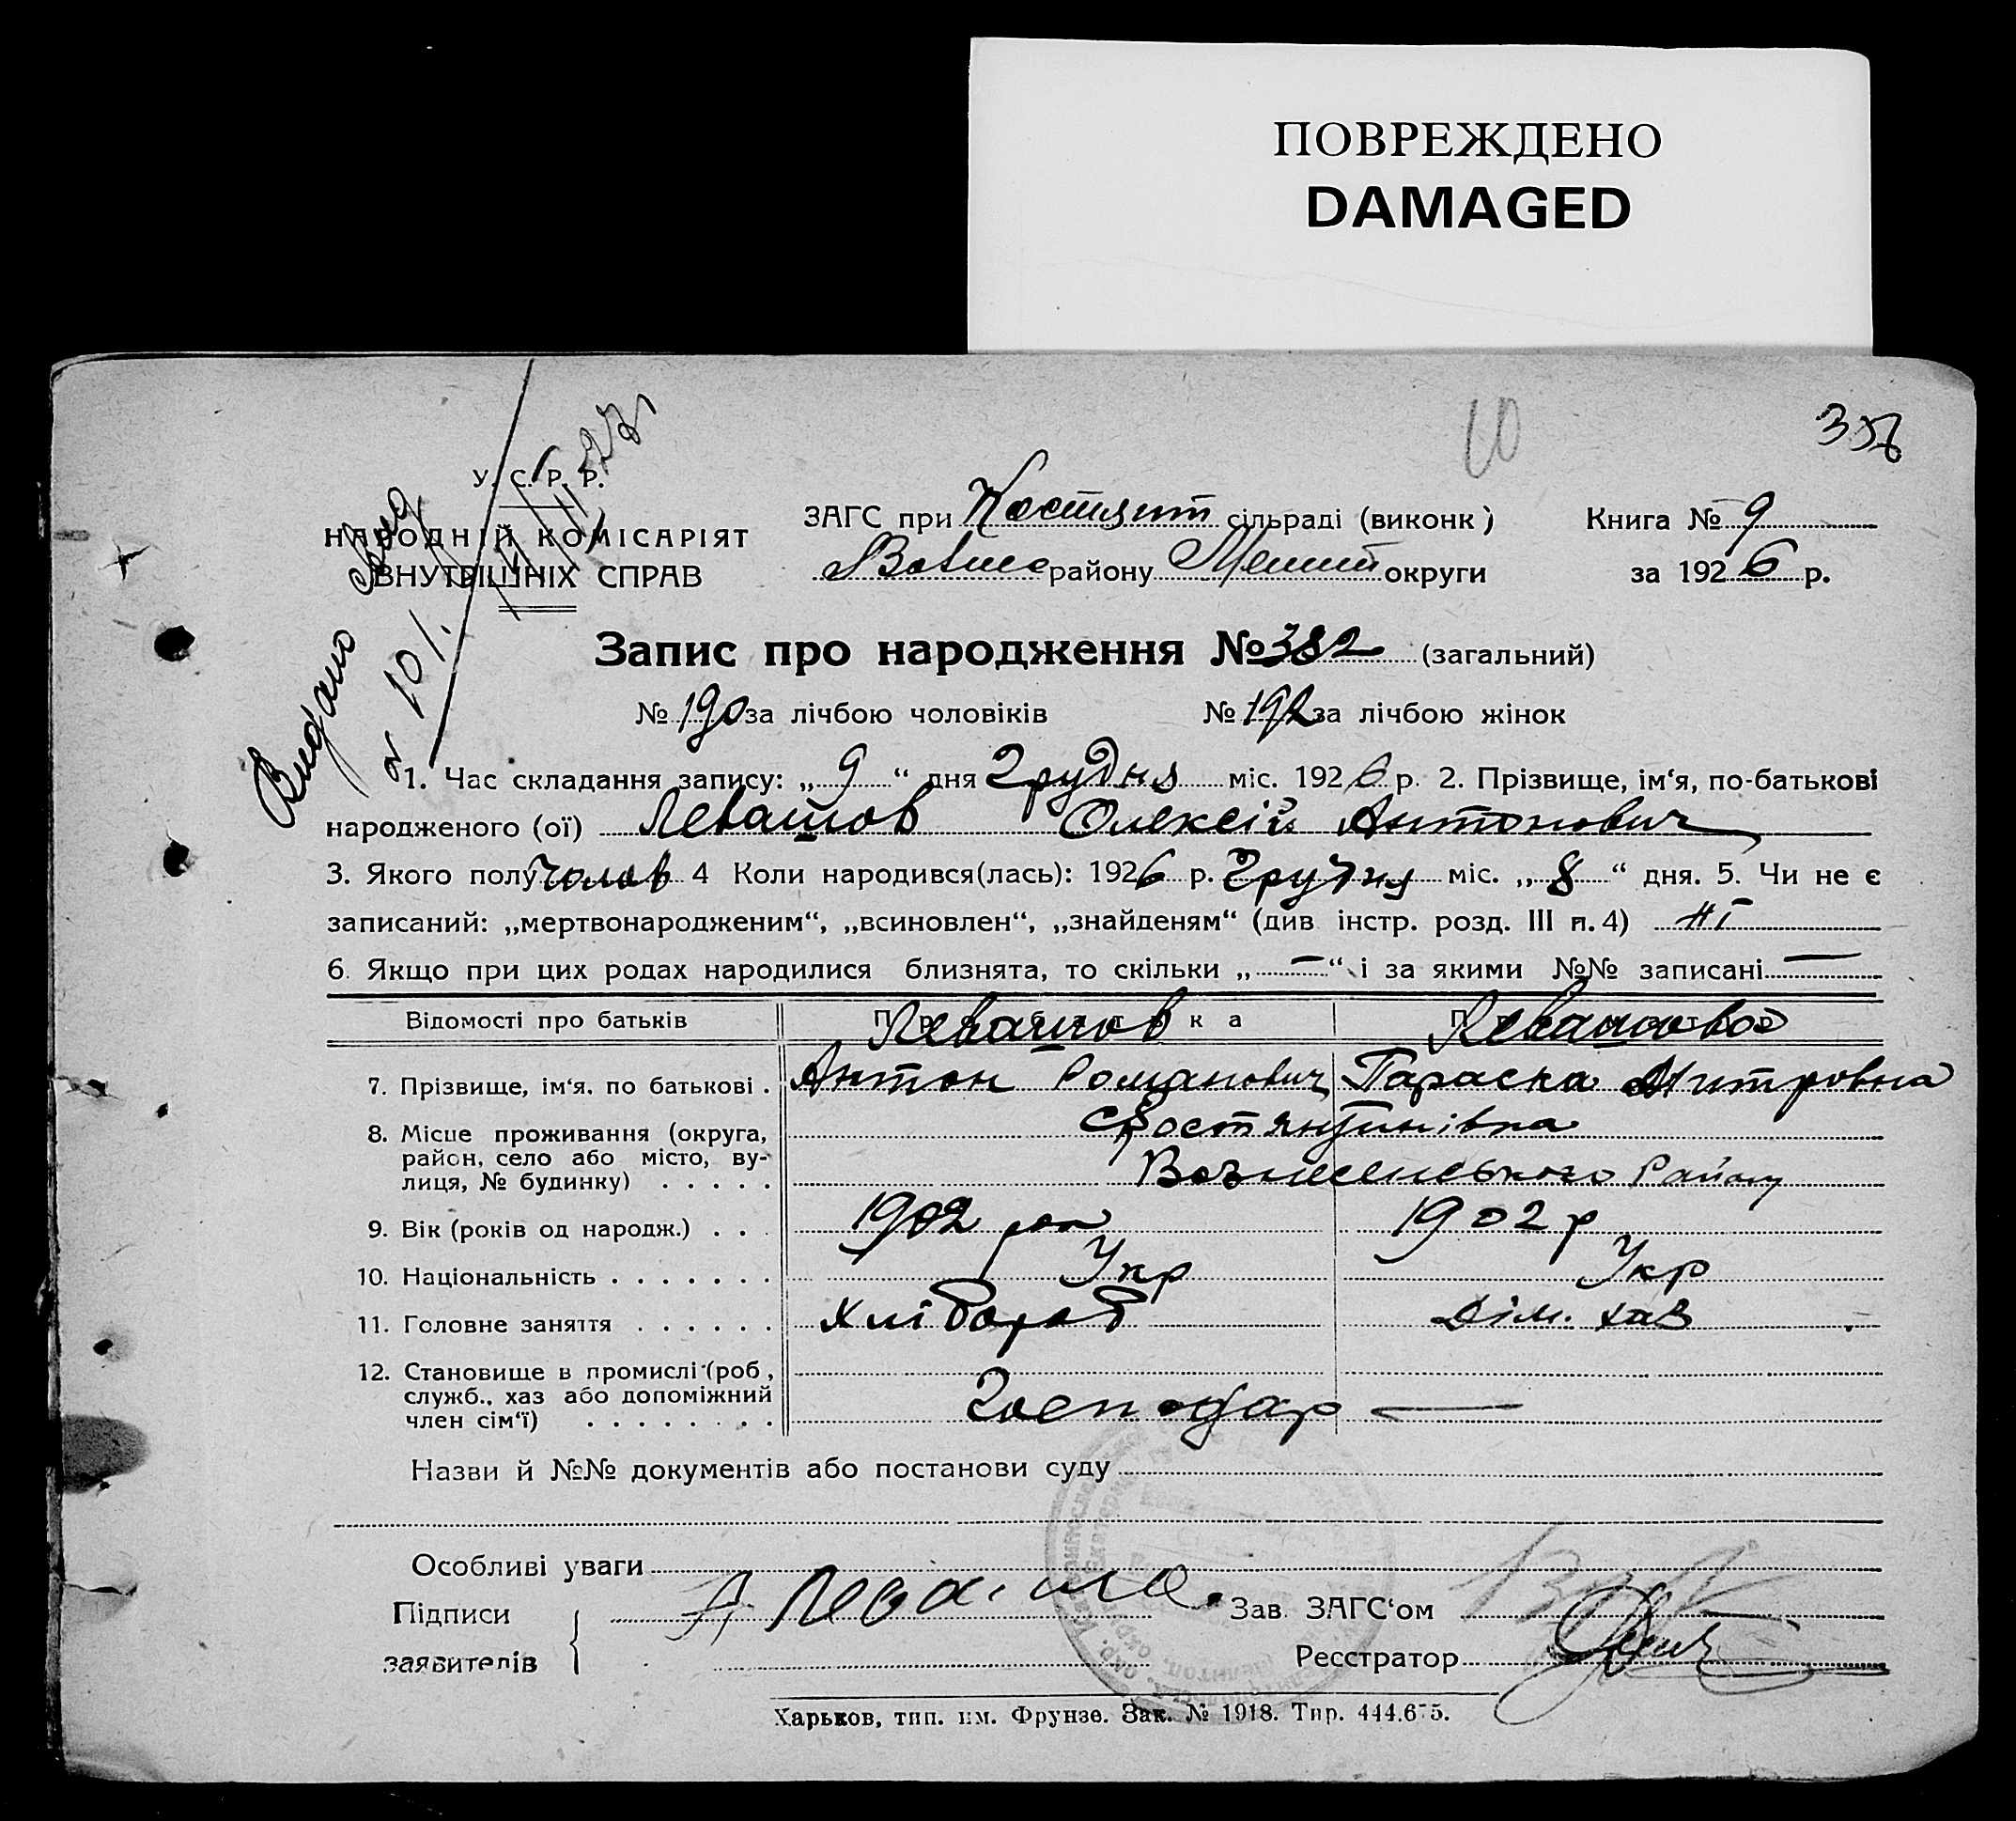 ПОВРЕЖДЕНО
DAMAGED
10
У. С. Р. Р.
НАРОДНІЙ КОМІСАРІЯТ
ВНУТРІШНІХ СПРАВ
Видано
ЗАГС при Костянт сільраді (виконк)
району Меліт округи
Книга № 9
за 1926 р.
Запис про народження № 382 (загальний)
№ 190 за лічбою чоловіків № 192 за лічбою жінок
1. Час складання запису: „9“ дня Грудня міс. 1926 р. 2. Прізвище, ім‘я, по-батькові
народженого (ої) Левашов Олексій Антонович
3. Якого полу чолов 4 Коли народився(лась): 1926 р. Грудня міс. „8“ дня. 5. Чи не є
записаний: „мертвонародженим“, „всиновлен“, „знайденям“ (див інстр. розд. III п. 4) ні
6. Якщо при цих родах народилися близнята, то скільки „—“ і за якими №№ записані —
Відомості про батьків Левашов Левашова
7. Прізвище, ім‘я, по батькові . Антон Романович Параска Митровна
8. Місце проживання (округа, район, село або місто, вулиця, № будинку) . . . . . Костянтинівка
Вознесенського Району
9. Вік (років од народж.) . . . 1902 рок 1902 р
10. Національність . . . . . . . Укр Укр
11. Головне заняття . . . . . . Хлібороб Дім. хаз
12. Становище в промислі (роб, служб., хаз або допоміжний член сім‘ї) . . . . . . . . Господар —
Назви й №№ документів або постанови суду
Особливі уваги
Підписи
заявителів
А Леваш
Зав. ЗАГС‘ом
Ресстратор
Харьков, тип. им. Фрунзе. Зак. № 1918. Тир. 444.675.